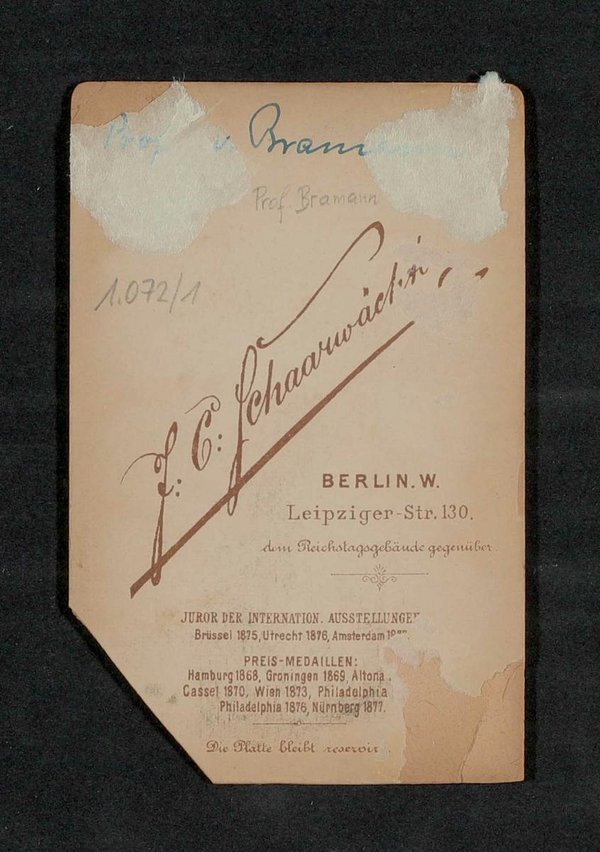 Prof v. Bramann
Prof. Bramann
1.072/1
J. C. Schaarwächter
BERLIN. W.
Leipziger-Str. 130.
dem Reichstagsgebäude gegenüber
JUROR DER INTERNATION. AUSSTELLUNGEN
Brüssel 1875, Utrecht 1876, Amsterdam
PREIS-MEDAILLEN:
Hamburg 1868, Groningen 1869, Altona
Cassel 1870, Wien 1873, Philadelphia
Philadelphia 1876, Nürnberg 1877.
Die Platte bleibt reservir